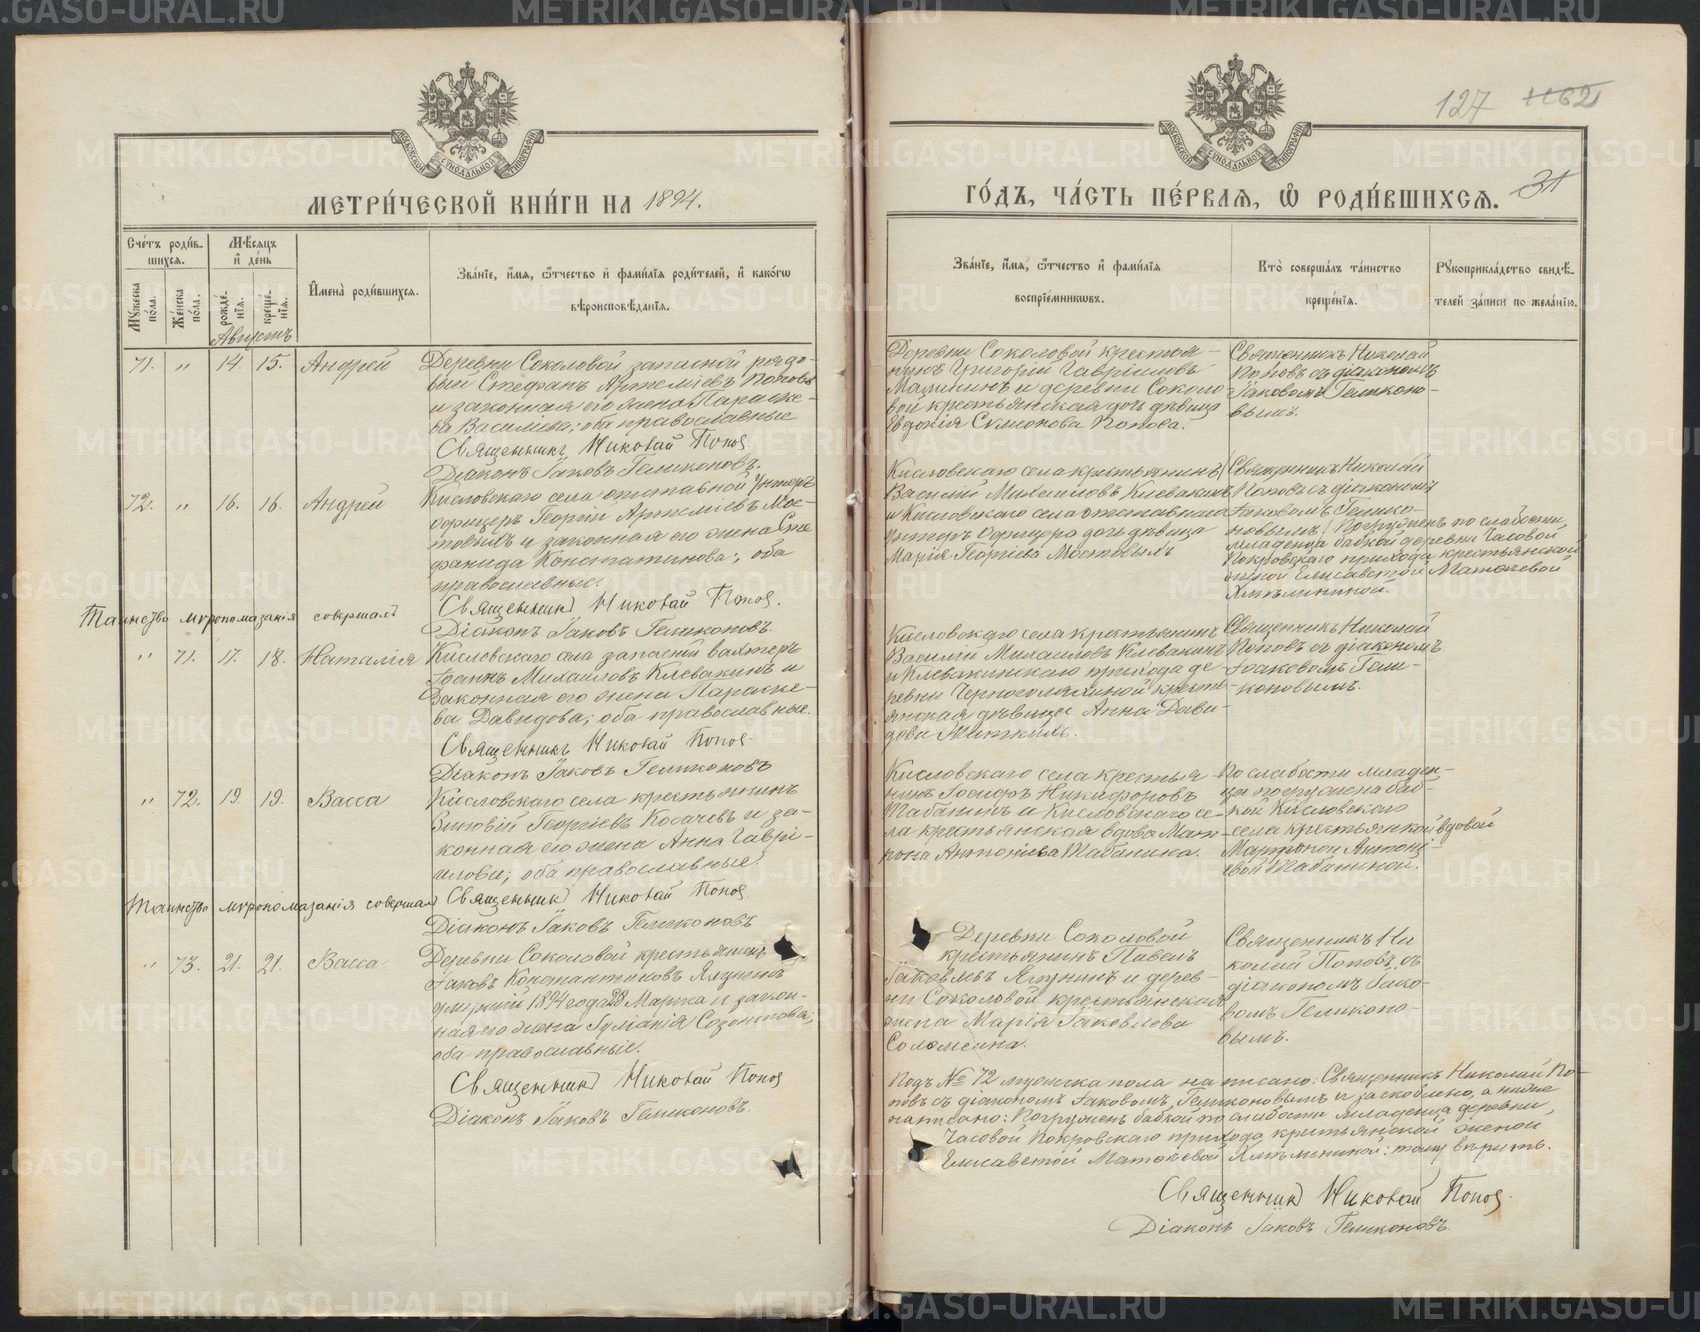 127 1162
31
МЕТРИ́ЧЕСКОЙ КНИ́ГИ НА 1894.
Сче́тъ роди́в-
шихся.
Мѣ́сяцъ
и҆ де́нь
Му́жеска по́ла.
Же́нска по́ла.
рожде́-нїя.
креще́-нїя.
И҆мена̀ роди́вшихся.
Зва́нїе, и҆́мя, ѻ҆́тчество и҆ фами́лїя роди́телей, и҆ како́гѡ
вѣроисповѣ́данїя.
Августъ
71. " 14. 15. Андрей
Деревни Соколовой запасной рядо-
вый Стефанъ Артемьевъ Поповъ
и законная его жена Параске-
ва Васильева; оба православные
Священникъ Николай Попов
Діаконъ Іаковъ Геликоновъ.
72. " 16. 16. Андрей
Кисловскаго села отставной унтеръ
офицеръ Георгій Артемьевъ Мос-
товыхъ и законная его жена Сте-
фанида Константинова; оба
православные.
Священникъ Николай Попов.
Таинство мѵропомазанія совершалъ
Діаконъ Іаковъ Геликоновъ.
" 71. 17. 18. Наталія
Кисловскаго села запасный вахтеръ
Іоаннъ Михаиловъ Клевакинъ и
законная его жена Параске-
ва Давидова; оба православные.
Священникъ Николай Попов
Діаконъ Іаковъ Геликоновъ
" 72. 19. 19. Васса
Кисловскаго села крестьянинъ
Зиновій Георгіевъ Косачевъ и за-
конная его жена Анна Гаврі-
илова; оба православные.
Таинство мѵропомазанія совершал Священникъ Николай Попов
Діаконъ Іаковъ Геликоновъ
" 73. 21. 21. Васса
Деревни Соколовой крестьянинъ
Іаковъ Константиновъ Ялунинъ
умершій 1894 года 28 Марта и закон-
ная его жена Іуліанія Созонтова;
оба православные.
Священникъ Николай Попов
Діаконъ Іаковъ Геликоновъ.
ГО́ДЪ, ЧА́СТЬ ПЕ́РВАЯ, Ѡ҆ РОДИ́ВШИХСЯ.
Зва́нїе, и҆́мя, ѻ҆́тчество и҆ фами́лїя
воспрїе́мникѡвъ.
Кто̀ соверша́лъ та́инство
креще́нїя.
Рукоприкла́дство свидѣ́-
телей за́писи по жела́нїю.
Деревни Соколовой крестья-
нинъ Григорій Гавріиловъ
Малининъ и деревни Соколо-
вой крестьянская дочь дѣвица
Евдокія Сумеонова Попова.
Священникъ Николай
Поповъ съ діакономъ
Іаковомъ Геликоно-
вымъ.
Кисловскаго села крестьянинъ
Василій Михаиловъ Клевакинъ
и Кисловскаго села отставнаго
унтеръ офицера дочь дѣвица
Марія Георгіева Мостовыхъ
Священникъ Николай
Поповъ съ діакономъ
Іаковомъ Гелико-
новымъ. Погруженъ по слабости
младенца бабкой деревни Часовой
Покровскаго прихода крестьянской
женой Елисаветой Матѳеевой
Хмѣлининой.
Кисловскаго села крестьянинъ
Василій Михаиловъ Клевакинъ
и Клевакинскаго прихода де-
ревни Черноголяхиной кресть-
янская дѣвица Анна Дави-
дова
Священникъ Николай
Поповъ съ діакономъ
Іаковомъ Гели-
коновымъ.
Кисловскаго села крестья-
нинъ Іосифъ Никифоровъ
Табанинъ и Кисловскаго се-
ла крестьянская вдова Мат-
рона Антоніева Табанина.
По слабости младен-
ца погружена баб-
кой Кисловскаго
села крестьянкой вдовой
Матроной Антоні-
евой Табаниной.
Деревни Соколовой
крестьянинъ Павелъ
Іаковлевъ Ялунинъ и дерев-
ни Соколовой крестьянская
жена Марія Іаковлева
Соломеина.
Священникъ Ни-
колай Поповъ съ
діакономъ Іако-
вомъ Геликоно-
вымъ.
Подъ № 72 мужска пола написано: Священникъ Николай По-
повъ съ діакономъ Іаковомъ Геликоновымъ и заскоблено, а ниже
написано: Погруженъ бабкой по слабости младенца деревни
Часовой Покровскаго прихода крестьянской женой
Елисаветой Матѳеевой Хмѣлининой: тому вѣрить.
Священникъ Николай Попов.
Діаконъ Іаковъ Геликоновъ.